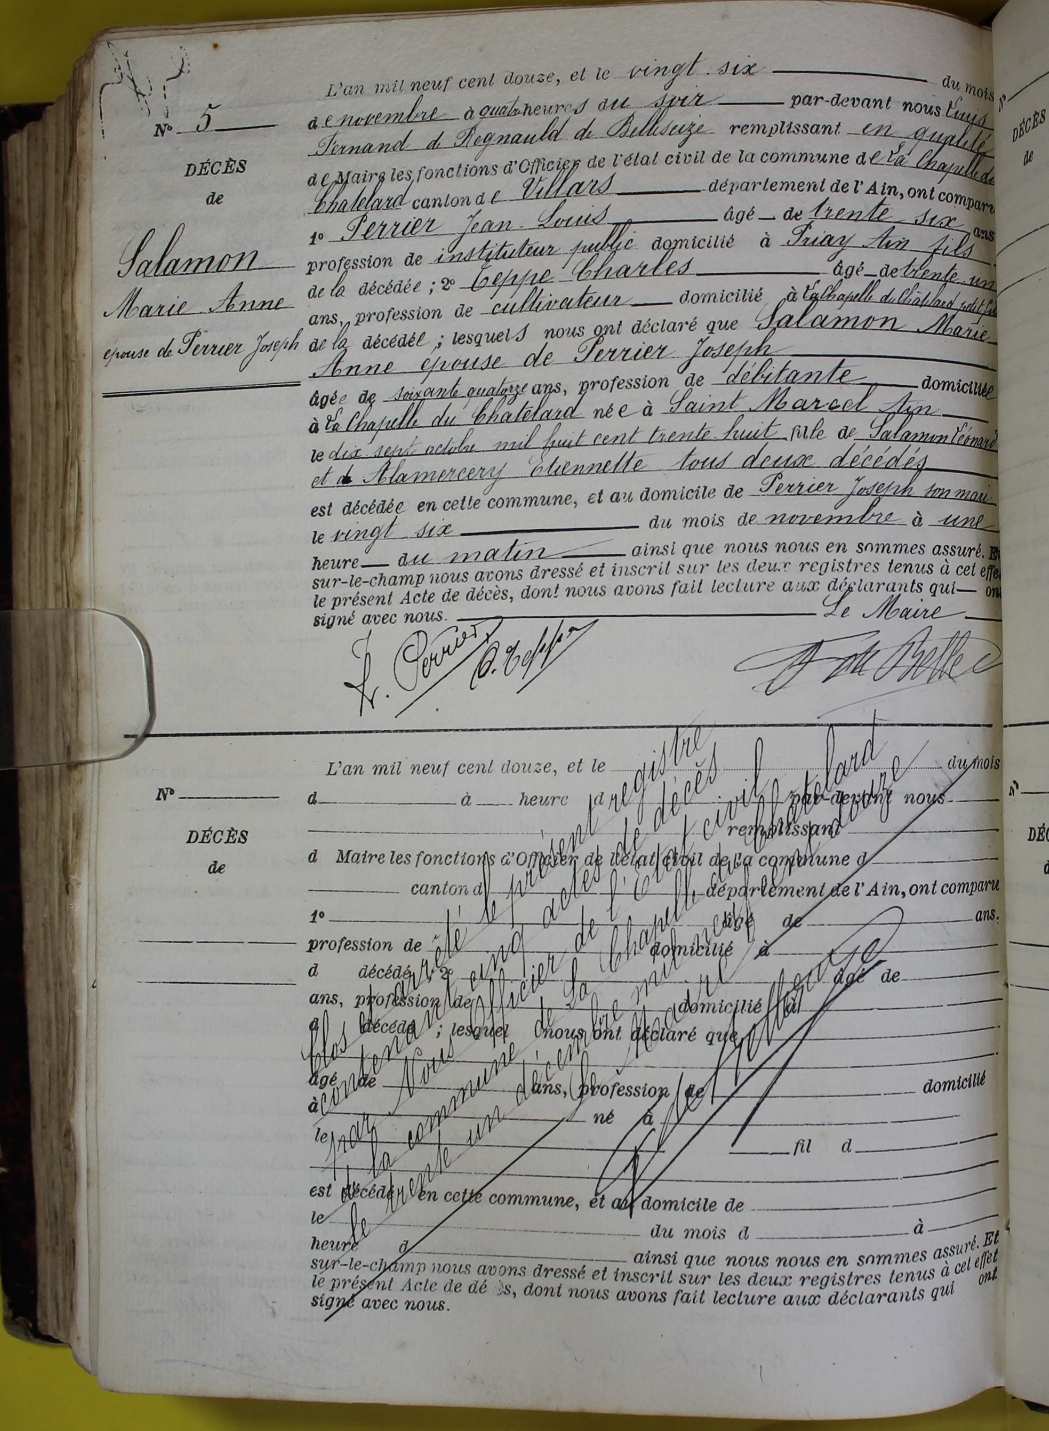 L'an mil neuf cent douze, et le vingt six du mois
Nº 5
de novembre à quatre heures du soir par-devant nous Louis
Fernand de Regnauld de Bellescize remplissant en qualité
DÉCÈS
de
de Maire les fonctions d'Officier de l'état civil de la commune de La Chapelle du
Châtelard canton de Villars département de l'Ain, ont comparu
1º Perrier Jean Louis âgé de trente six ans
Salamon
profession de instituteur public domicilié à Priay Ain fils
de la décédée ; 2º Teppe Charles âgé de trente un
Marie Anne
ans, profession de cultivateur domicilié à La Chapelle du Châtelard petit fils
épouse de Perrier Joseph
de la décédée ; lesquels nous ont déclaré que Salamon Marie
Anne épouse de Perrier Joseph
âgée de soixante quatorze ans, profession de débitante domiciliée
à La Chapelle du Châtelard née à Saint Marcel Ain
le dix sept octobre mil huit cent trente huit fille de Salamon Léonard
et de Alamercery Etiennette tous deux décédés
est décédée en cette commune, et au domicile de Perrier Joseph son mari
le vingt six du mois de novembre à une
heure du matin ainsi que nous nous en sommes assuré. Et
sur-le-champ nous avons dressé et inscrit sur les deux registres tenus à cet effet
le présent Acte de décès, dont nous avons fait lecture aux déclarants qui ont
signé avec nous. Le Maire
L. Perrier C. Teppe
L'an mil neuf cent douze, et le du mois
Nº
d à heure d par-devant nous
remplissant
DÉCÈS
de
d Maire les fonctions d'Officier de l'état civil de la commune d
canton d département de l'Ain, ont comparu
1º âgé de ans.
profession de domicilié à
d décédé ; 2º âgé de
ans, profession de domicilié à
d décédé ; lesquel nous ont déclaré que
âgé de ans, profession de domicilié
à né à
le fil d
est décédé en cette commune, et au domicile de
le du mois d à
heure d ainsi que nous nous en sommes assuré. Et
sur-le-champ nous avons dressé et inscrit sur les deux registres tenus à cet effet
le présent Acte de décès, dont nous avons fait lecture aux déclarants qui ont
signé avec nous.
Clos et arrêté le présent registre
contenant cinq actes de décès
par Nous Officier de l'Etat civil
de la commune de La Chapelle du Châtelard
le trente un décembre mil neuf cent douze
Le Maire
Nº
DÉCÈS
de
Nº